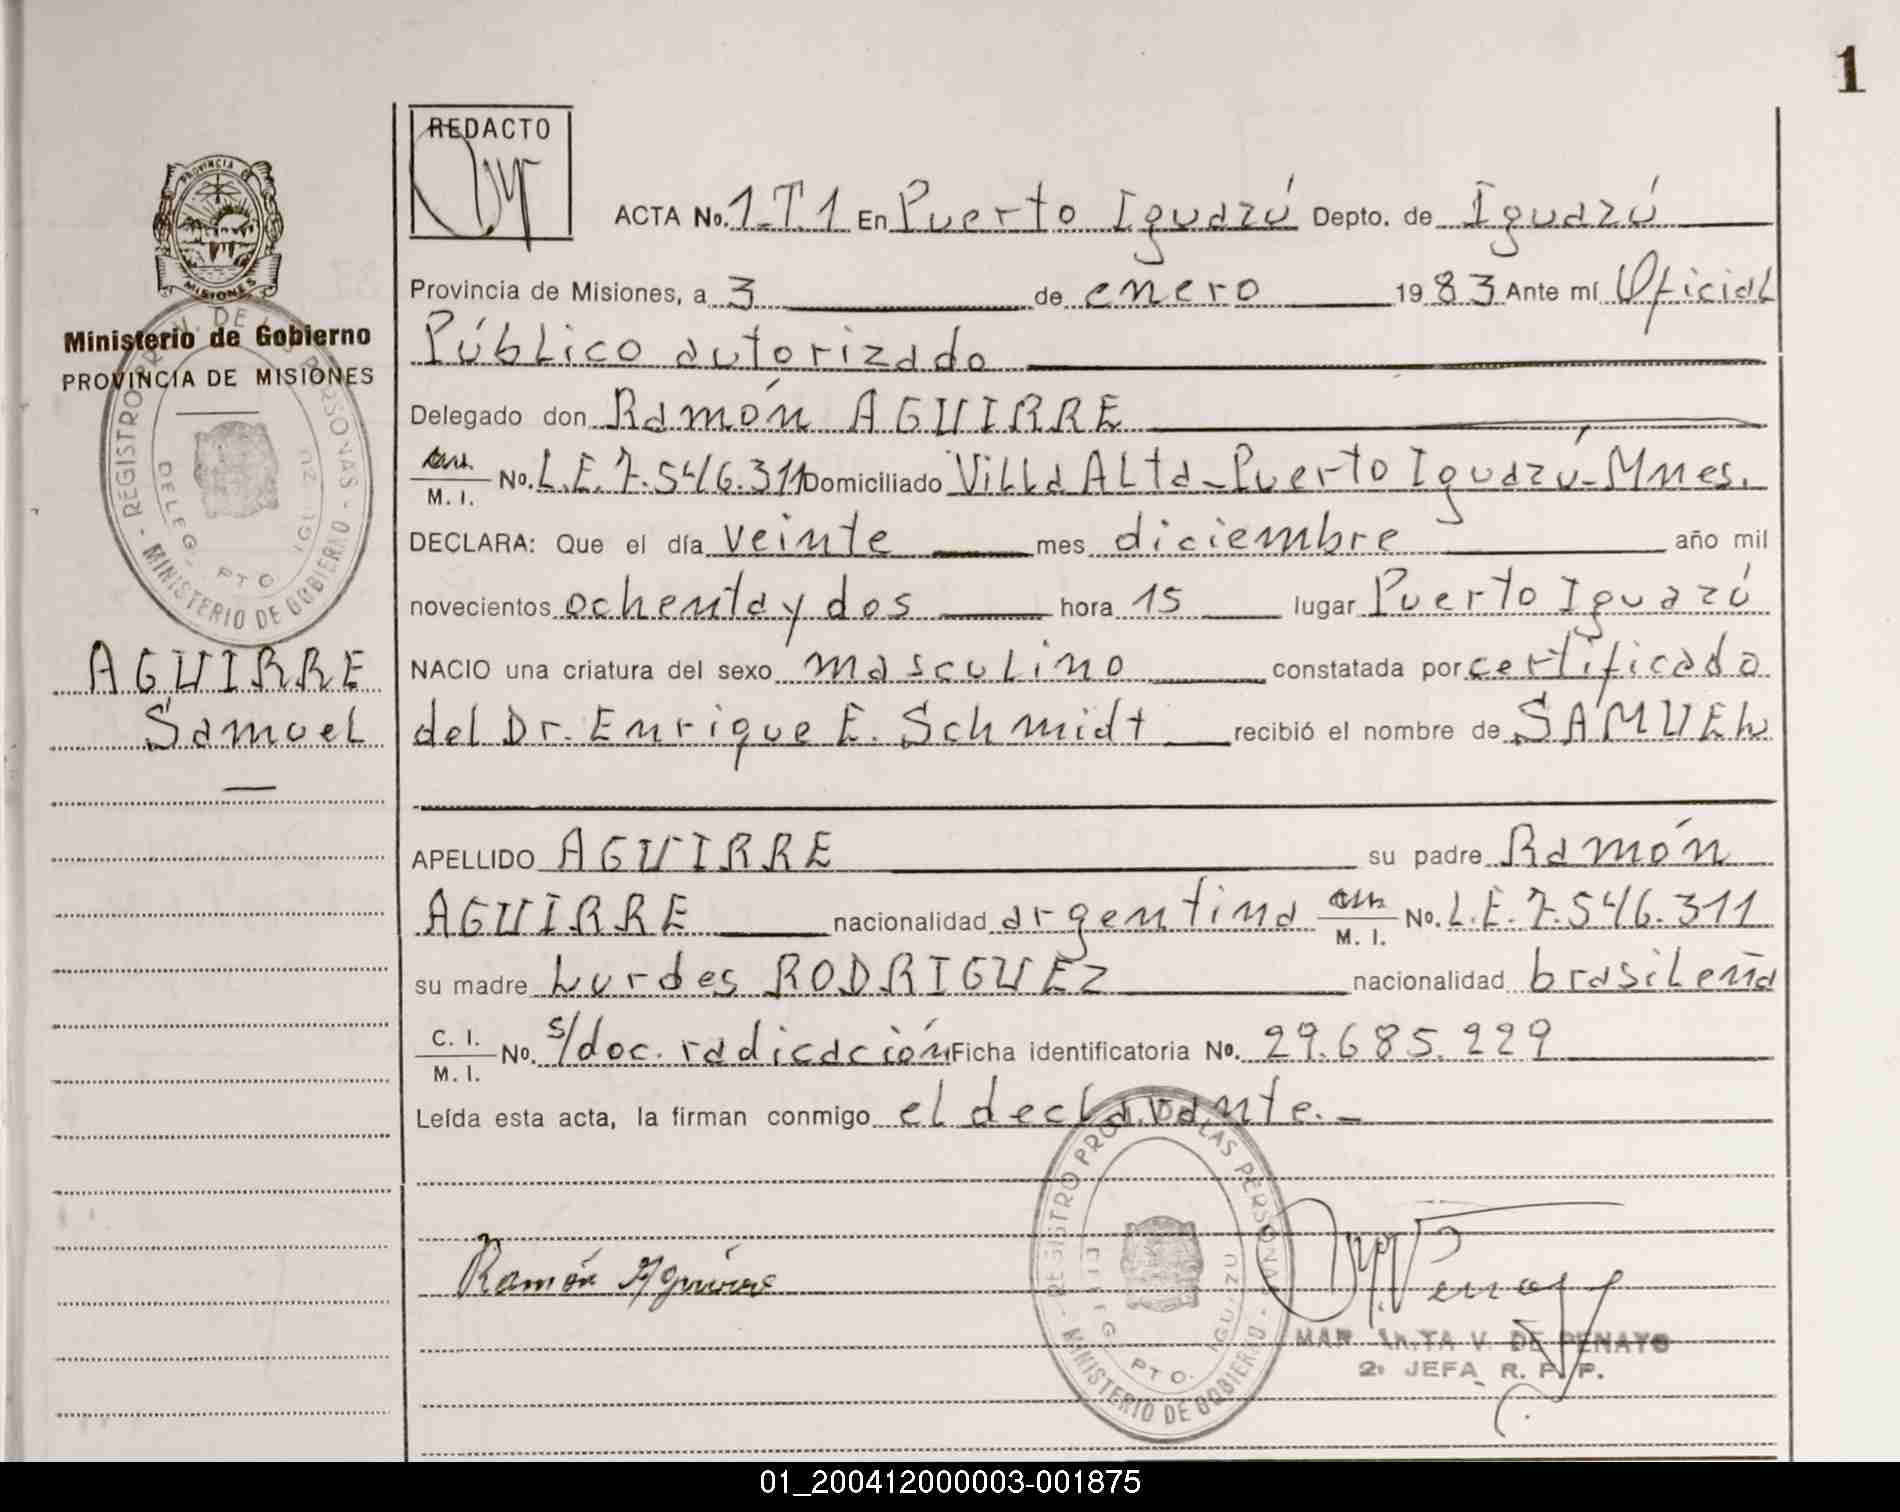 1
REDACTO
PROVINCIA DE
MISIONES
Ministerio de Gobierno
PROVINCIA DE MISIONES
MINISTERIO DE GOBIERNO
DELEG. PTO. IGUAZU
AGUIRRE
Samuel
ACTA No. 1-T.1 En Puerto Iguazú Depto. de Iguazú
Provincia de Misiones, a 3 de enero 1983 Ante mí Oficial
Público autorizado
Delegado don Ramón AGUIRRE
M. I. No. L.E. 7.546.311 Domiciliado Villa Alta-Puerto Iguazú-Mnes.
DECLARA: Que el día veinte mes diciembre año mil
novecientos ochenta y dos hora 15 lugar Puerto Iguazú
NACIO una criatura del sexo masculino constatada por certificado
del Dr. Enrique E. Schmidt recibió el nombre de SAMUEL
APELLIDO AGUIRRE su padre Ramón
AGUIRRE nacionalidad argentina M. I. No. L.E. 7.546.311
su madre Lurdes RODRIGUEZ nacionalidad brasileña
C. I. M. I. No. s/doc. radicación Ficha identificatoria No. 29.685.229
Leída esta acta, la firman conmigo el declarante.-
REGISTRO PROV. DE LAS PERSONAS
MINISTERIO DE GOBIERNO
DELEG. PTO. IGUAZU
Ramón Aguirre
V. DE PENAYO
2ª JEFA R. P. P.
01_200412000003-001875